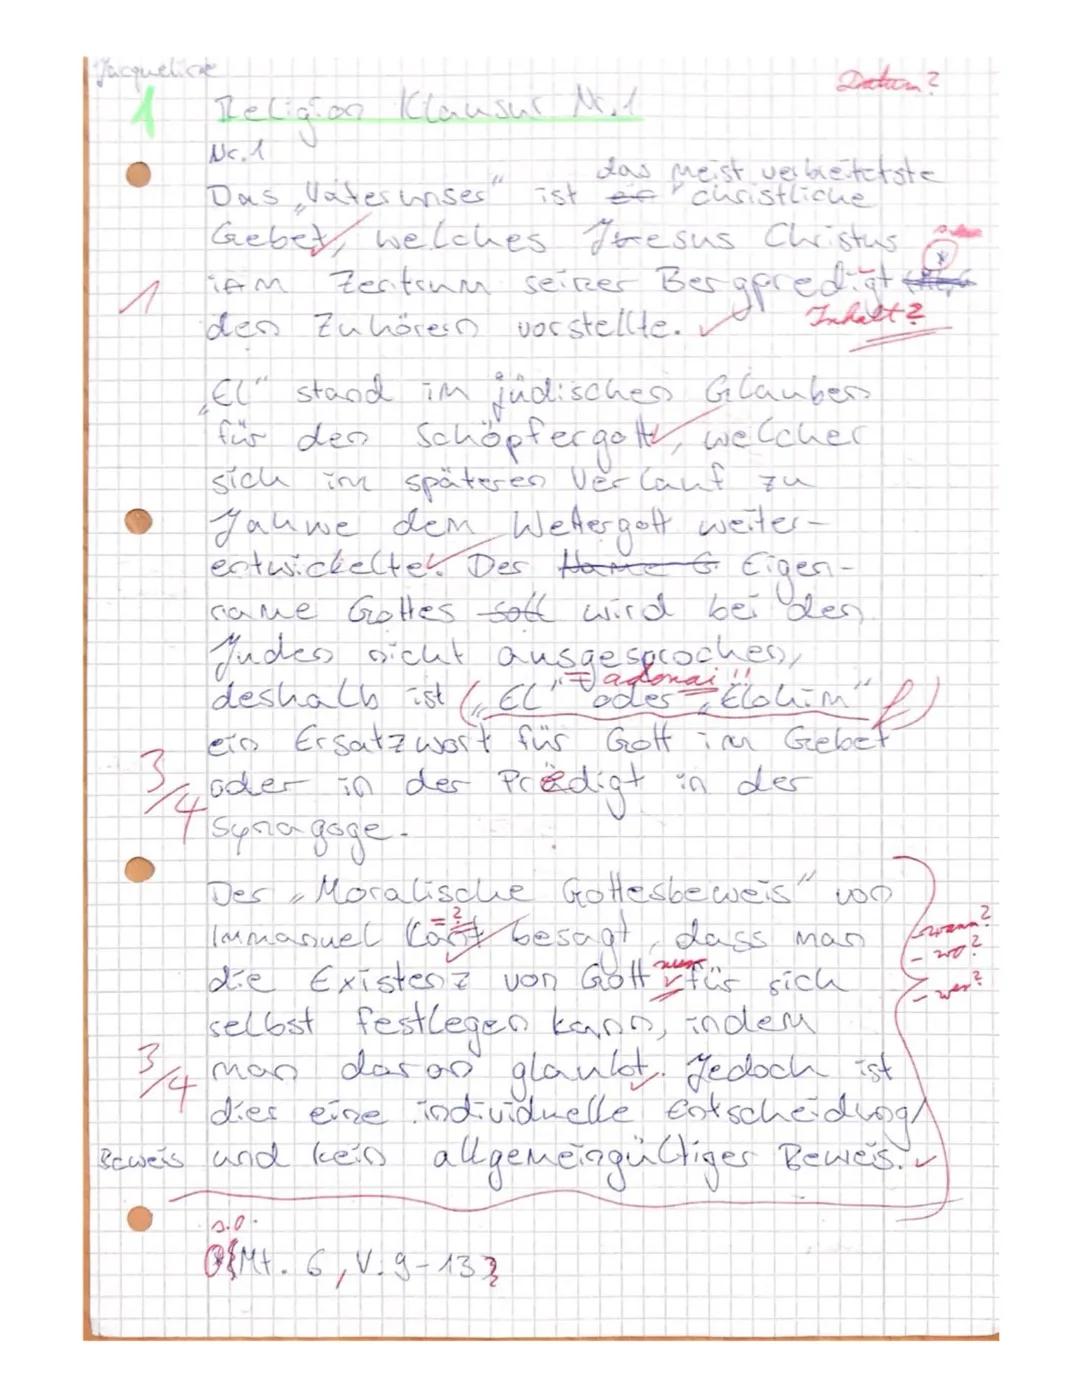 Jacqueline
Datum?
1 Religion Klausur Nr.1
Nr.1
das meist verbreitetste
Das „Vaterunser" ist ein christliche
Gebet, welches Jesus Christus
1 im Zentrum seiner Bergpredigt *
den Zuhörern vorstellte. Inhalt?
„El" stand im jüdischen Glauben
für den Schöpfergott, welcher
sich im späteren Verlauf zu
Jahwe dem Wettergott weiter-
entwickelte. Der Name G Eigen-
name Gottes soll wird bei den
Juden nicht ausgesprochen,
= adonai!!
deshalb ist („El" oder „Elohim" f)
ein Ersatzwort für Gott im Gebet
3/4 oder in der Predigt in der
Synagoge.
Der „Moralische Gottesbeweis" von
= ?
Immanuel Kant besagt, dass man
- wann?
- wo?
nur
die Existenz von Gott für sich
- wer?
selbst festlegen kann, indem
3/4 man daran glaubt. Jedoch ist
dies eine individuelle Entscheidung
Beweis und kein allgemeingültiger Beweis.
s.o.
(Mt. 6, V. 9-13)